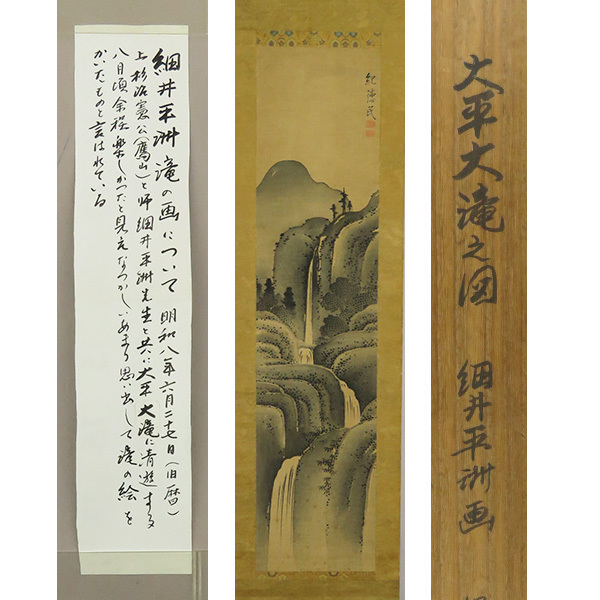 細井平洲滝の画について 明和八年六月二十七日(旧暦)
上杉治憲公(鷹山)と師細井平洲先生と共に大平大滝に清遊する
八月頃余程楽しかったと見えなつかしいあまり思い出して滝の絵を
かいたものと言はれている
紀徳民
大平大滝之図 細井平洲画